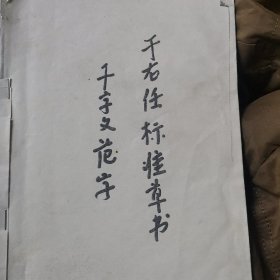 于右任标准草书
千字文范字